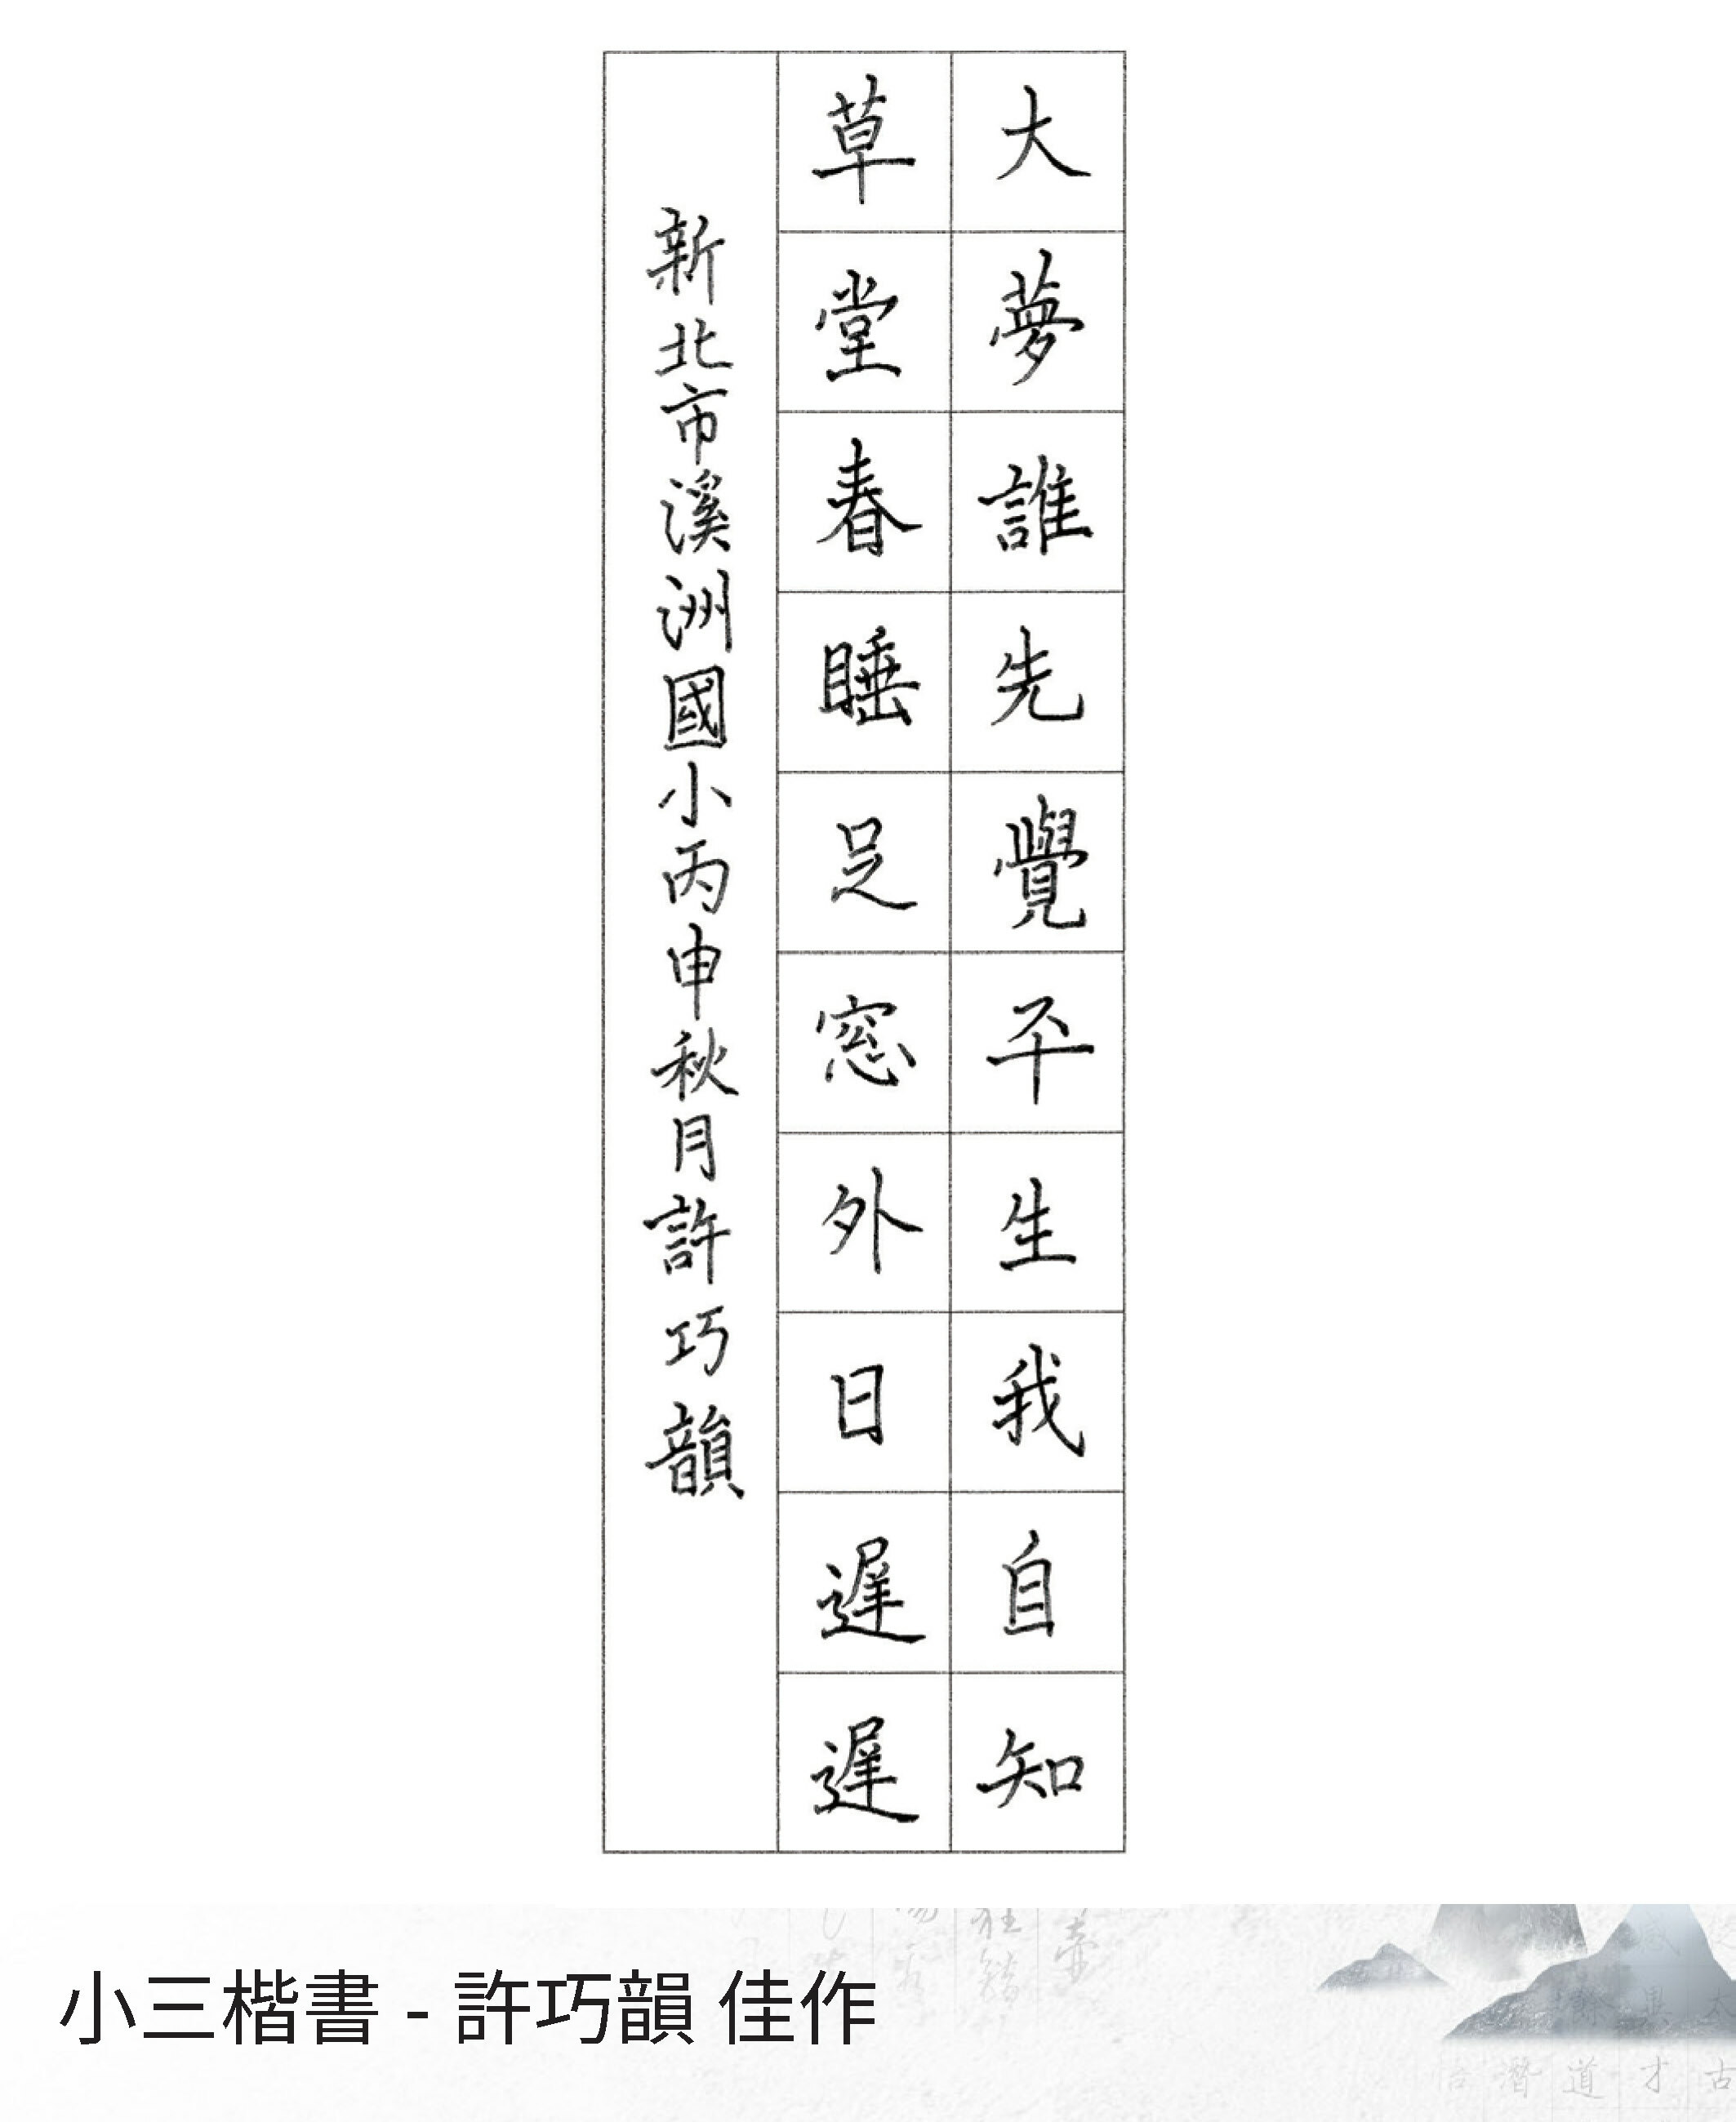 大夢誰先覺平生我自知
草堂春睡足窓外日遲遲
新北市溪洲國小丙申秋月許巧韻
小三楷書 - 許巧韻 佳作